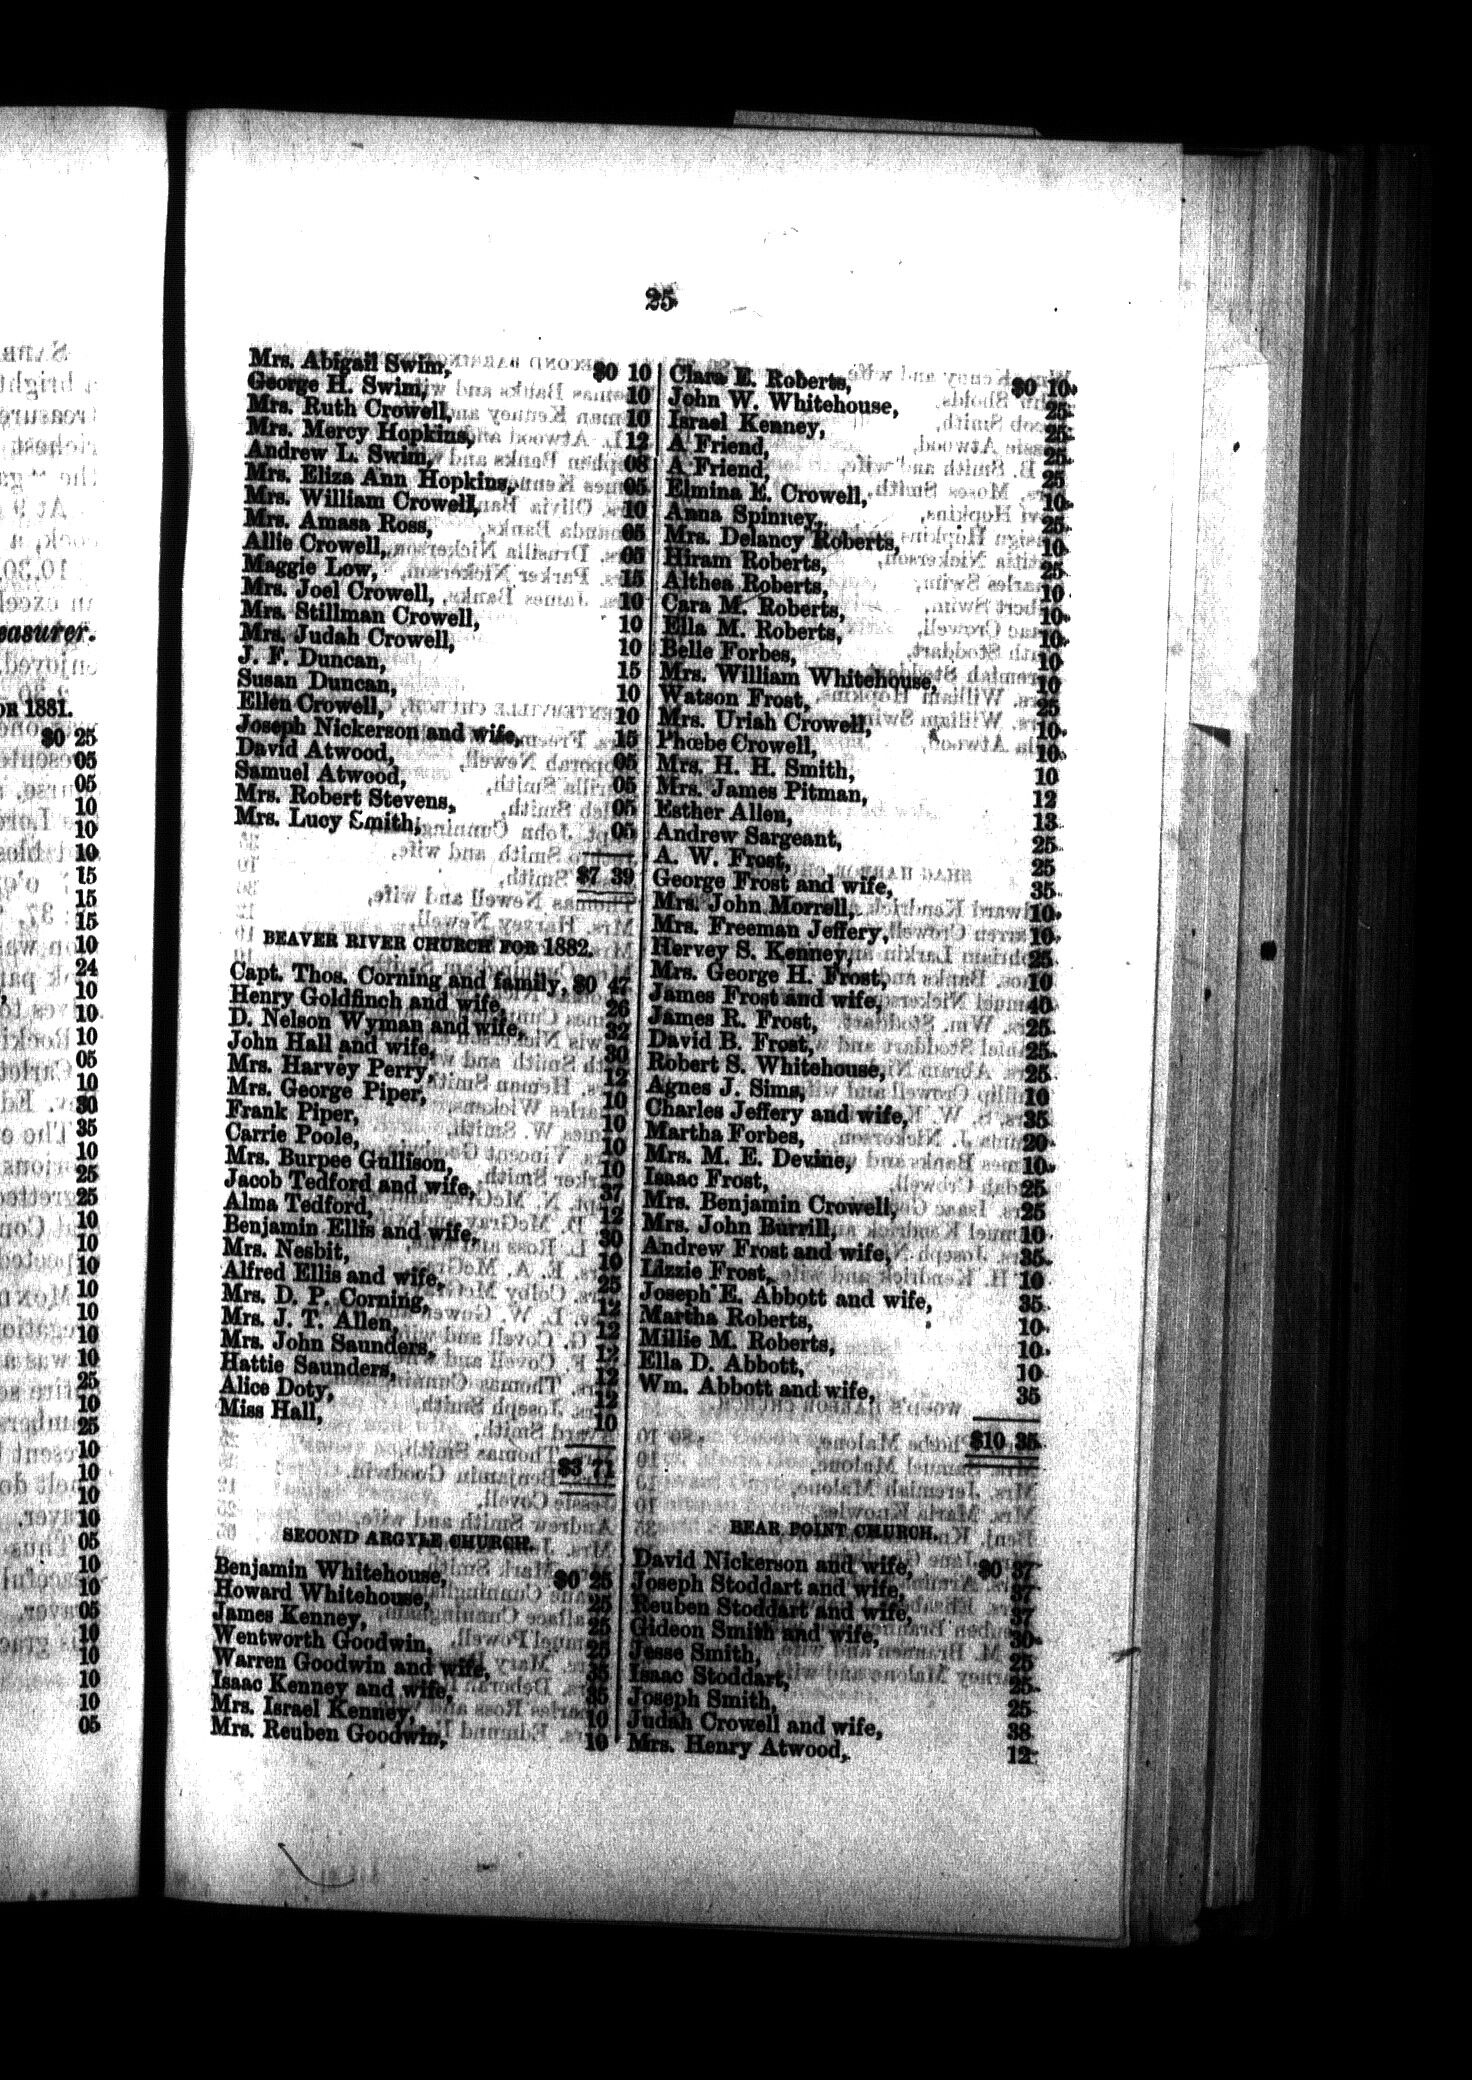 25
Mrs. Abigail Swim, $0 10
George H. Swim, 10
Mrs. Ruth Crowell, 10
Mrs. Mercy Hopkins, 12
Andrew L. Swim, 08
Mrs. Eliza Ann Hopkins, 05
Mrs. William Crowell, 10
Mrs. Amasa Ross, 05
Allie Crowell, 05
Maggie Low, 15
Mrs. Joel Crowell, 10
Mrs. Stillman Crowell, 10
Mrs. Judah Crowell, 10
J. F. Duncan, 15
Susan Duncan, 10
Ellen Crowell, 10
Joseph Nickerson and wife, 15
David Atwood, 05
Samuel Atwood, 05
Mrs. Robert Stevens, 05
Mrs. Lucy Smith, 05
$7 39
BEAVER RIVER CHURCH FOR 1882.
Capt. Thos. Corning and family, $0 47
Henry Goldfinch and wife, 26
D. Nelson Wyman and wife, 32
John Hall and wife, 30
Mrs. Harvey Perry, 12
Mrs. George Piper, 10
Frank Piper, 10
Carrie Poole, 10
Mrs. Burpee Gullison, 10
Jacob Tedford and wife, 37
Alma Tedford, 12
Benjamin Ellis and wife, 30
Mrs. Nesbit, 10
Alfred Ellis and wife, 25
Mrs. D. P. Corning, 12
Mrs. J. T. Allen, 12
Mrs. John Saunders, 12
Hattie Saunders, 12
Alice Doty, 12
Miss Hall, 10
$3 71
SECOND ARGYLE CHURCH.
Benjamin Whitehouse, $0 25
Howard Whitehouse, 25
James Kenney, 25
Wentworth Goodwin, 25
Warren Goodwin and wife, 35
Isaac Kenney and wife, 35
Mrs. Israel Kenney, 10
Mrs. Reuben Goodwin, 10
Clara E. Roberts, $0 10
John W. Whitehouse, 25
Israel Kenney, 25
A Friend, 25
A Friend, 25
Elmina E. Crowell, 10
Anna Spinney, 25
Mrs. Delancy Roberts, 10
Hiram Roberts, 25
Althea Roberts, 10
Cara M. Roberts, 10
Ella M. Roberts, 10
Belle Forbes, 10
Mrs. William Whitehouse, 10
Watson Frost, 25
Mrs. Uriah Crowell, 10
Phœbe Crowell, 10
Mrs. H. H. Smith, 10
Mrs. James Pitman, 12
Esther Allen, 13
Andrew Sargeant, 25
A. W. Frost, 25
George Frost and wife, 35
Mrs. John Morrell, 10
Mrs. Freeman Jeffery, 10
Hervey S. Kenney, 25
Mrs. George H. Frost, 10
James Frost and wife, 40
James R. Frost, 25
David B. Frost, 25
Robert S. Whitehouse, 25
Agnes J. Sims, 10
Charles Jeffery and wife, 35
Martha Forbes, 20
Mrs. M. E. Devine, 10
Isaac Frost, 25
Mrs. Benjamin Crowell, 25
Mrs. John Burrill, 10
Andrew Frost and wife, 35
Lizzie Frost, 10
Joseph E. Abbott and wife, 35
Martha Roberts, 10
Millie M. Roberts, 10
Ella D. Abbott, 10
Wm. Abbott and wife, 35
$10 35
BEAR POINT CHURCH.
David Nickerson and wife, $0 37
Joseph Stoddart and wife, 37
Reuben Stoddart and wife, 37
Gideon Smith and wife, 30
Jesse Smith, 25
Isaac Stoddart, 25
Joseph Smith, 25
Judah Crowell and wife, 38
Mrs. Henry Atwood, 12